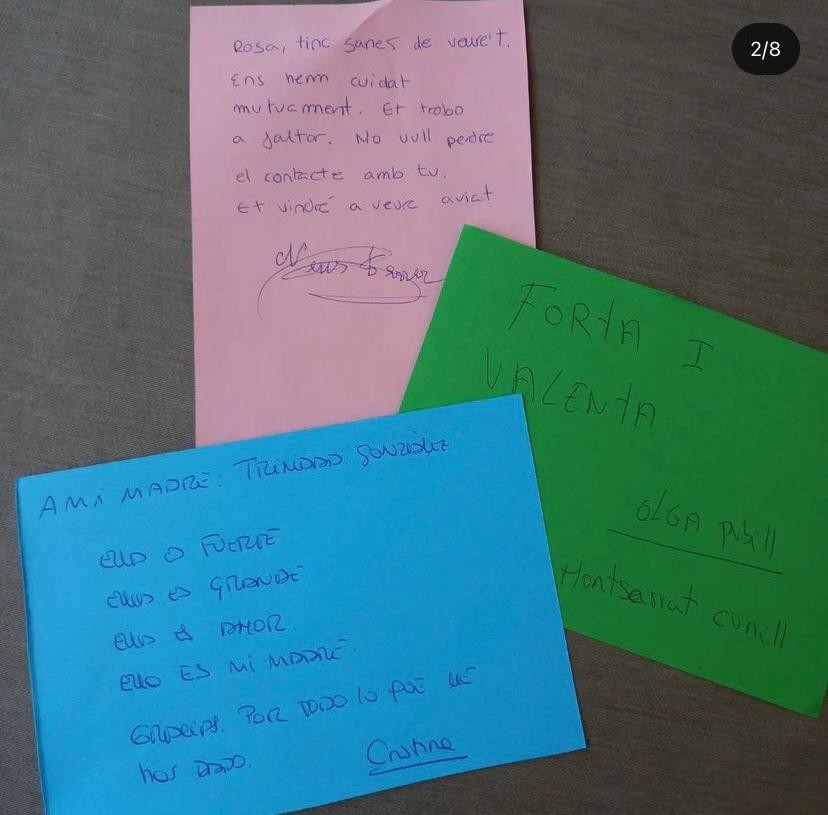 2/8
Rosa, tinc ganes de veure't.
Ens hem cuidat
mutuament. Et trobo
a faltar. No vull perdre
el contacte amb tu.
Et vindré a veure aviat
Neus
FORTA I
VALENTA
OLGA Pubill
Montserrat cunill
A Mi MADRE: TRINIDAD GONZÁLEZ
ELLA ES FUERTE
ELLA ES GRANDE
ELLA ES AMOR.
ELLA ES Mi MADRE.
GRACIAS. POR TODO lo QUE ME
has DADO.
Cristina